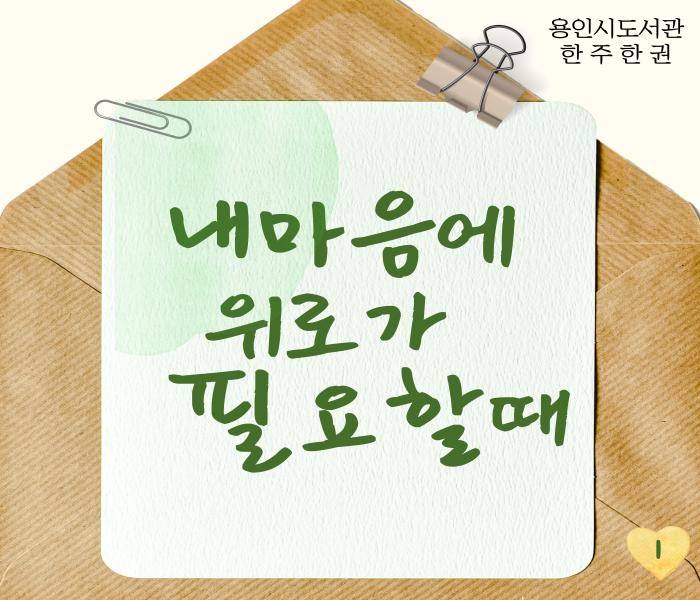 용인시도서관
한 주 한 권
내 마음에
위로가
필요할때
1